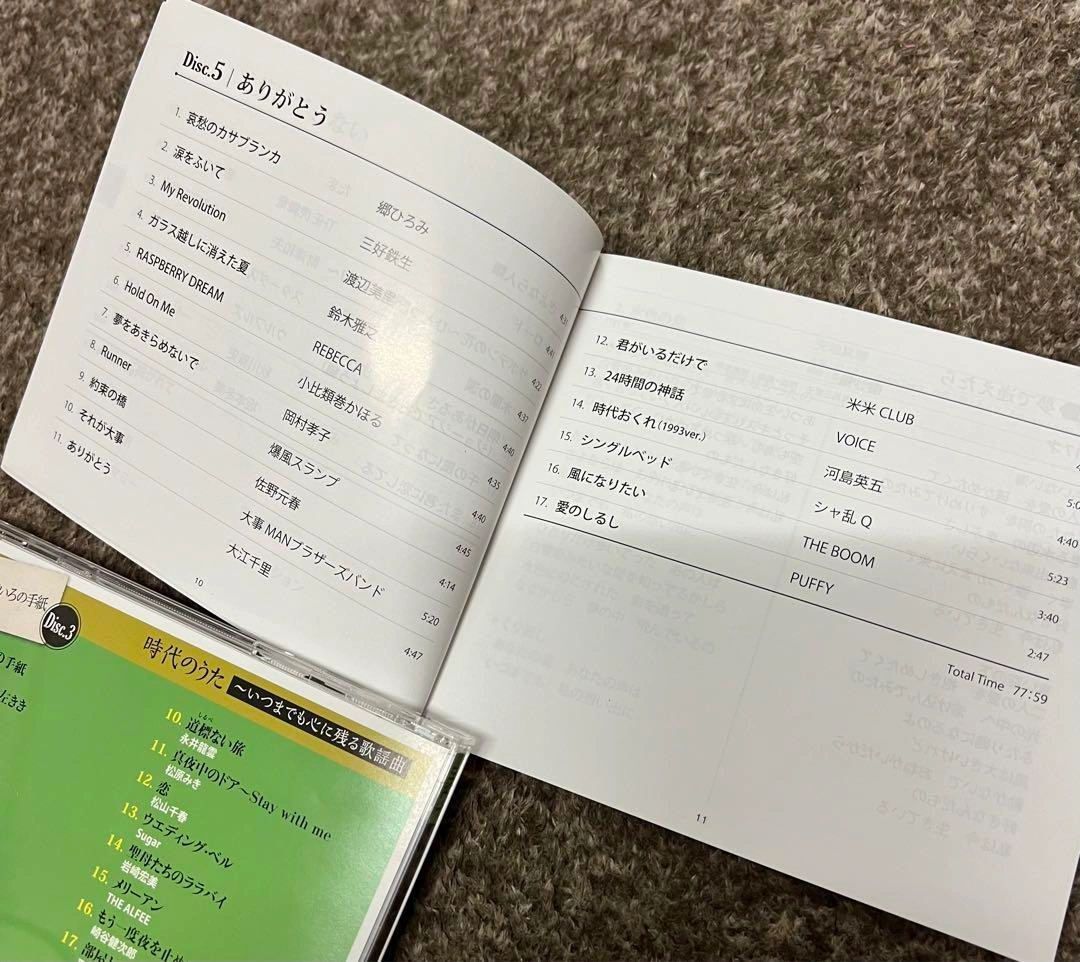 Disc.5 | ありがとう
1. 哀愁のカサブランカ 郷ひろみ 4:31
2. 涙をふいて 三好鉄生 4:41
3. My Revolution 渡辺美里 4:22
4. ガラス越しに消えた夏 鈴木雅之 4:37
5. RASPBERRY DREAM REBECCA 4:40
6. Hold On Me 小比類巻かほる 4:35
7. 夢をあきらめないで 岡村孝子 4:40
8. Runner 爆風スランプ 4:45
9. 約束の橋 佐野元春 4:14
10. それが大事 大事MANブラザーズバンド 5:20
11. ありがとう 大江千里 4:47
10
12. 君がいるだけで 米米CLUB
13. 24時間の神話 VOICE
14. 時代おくれ(1993ver.) 河島英五 4:40
15. シングルベッド シャ乱Q 5:23
16. 風になりたい THE BOOM 3:40
17. 愛のしるし PUFFY 2:47
Total Time 77:59
11
いろの手紙
Disc.3
時代のうた ～いつまでも心に残る歌謡曲
の手紙
左きき
10. 道標ない旅
しるべ
永井龍雲
11. 真夜中のドア～Stay with me
松原みき
12. 恋
松山千春
13. ウエディング・ベル
Sugar
14. 聖母たちのララバイ
岩崎宏美
15. メリーアン
THE ALFEE
16. もう一度夜を止め
崎谷健次郎
17. 部屋